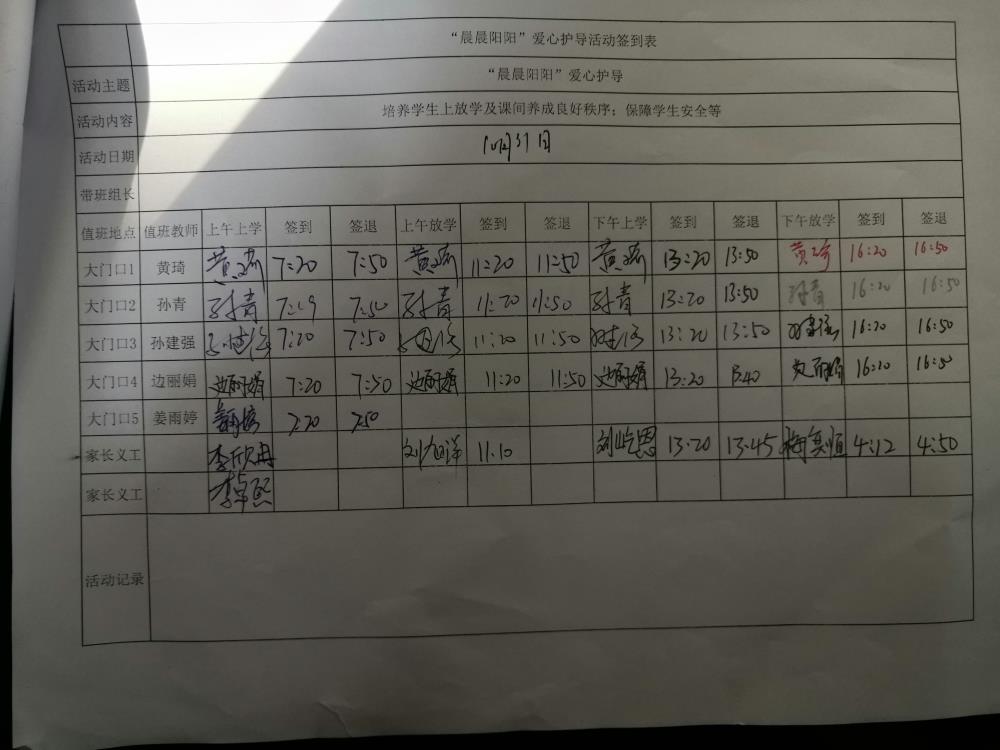 “晨晨阳阳”爱心护导活动签到表
活动主题 “晨晨阳阳”爱心护导
活动内容 培养学生上放学及课间养成良好秩序；保障学生安全等
活动日期 10月31日
带班组长
值班地点 值班教师 上午上学 签到 签退 上午放学 签到 签退 下午上学 签到 签退 下午放学 签到 签退
大门口1 黄琦 黄琦 7:20 7:50 黄琦 11:20 11:50 黄琦 13:20 13:50 黄琦 16:20 16:50
大门口2 孙青 孙青 7:19 7:50 孙青 11:20 11:50 孙青 13:20 13:50 孙青 16:20 16:50
大门口3 孙建强 孙建强 7:20 7:50 孙建强 11:20 11:50 孙建强 13:20 13:50 孙建强 16:20 16:50
大门口4 边丽娟 边丽娟 7:20 7:50 边丽娟 11:20 11:50 边丽娟 13:20 13:40 边丽娟 16:20 16:50
大门口5 姜雨婷 姜雨婷 7:20 7:50
家长义工 李欣冉 刘旭洋 11:10 刘屿恩 13:20 13:45 4:12 4:50
家长义工 李卓熙
活动记录